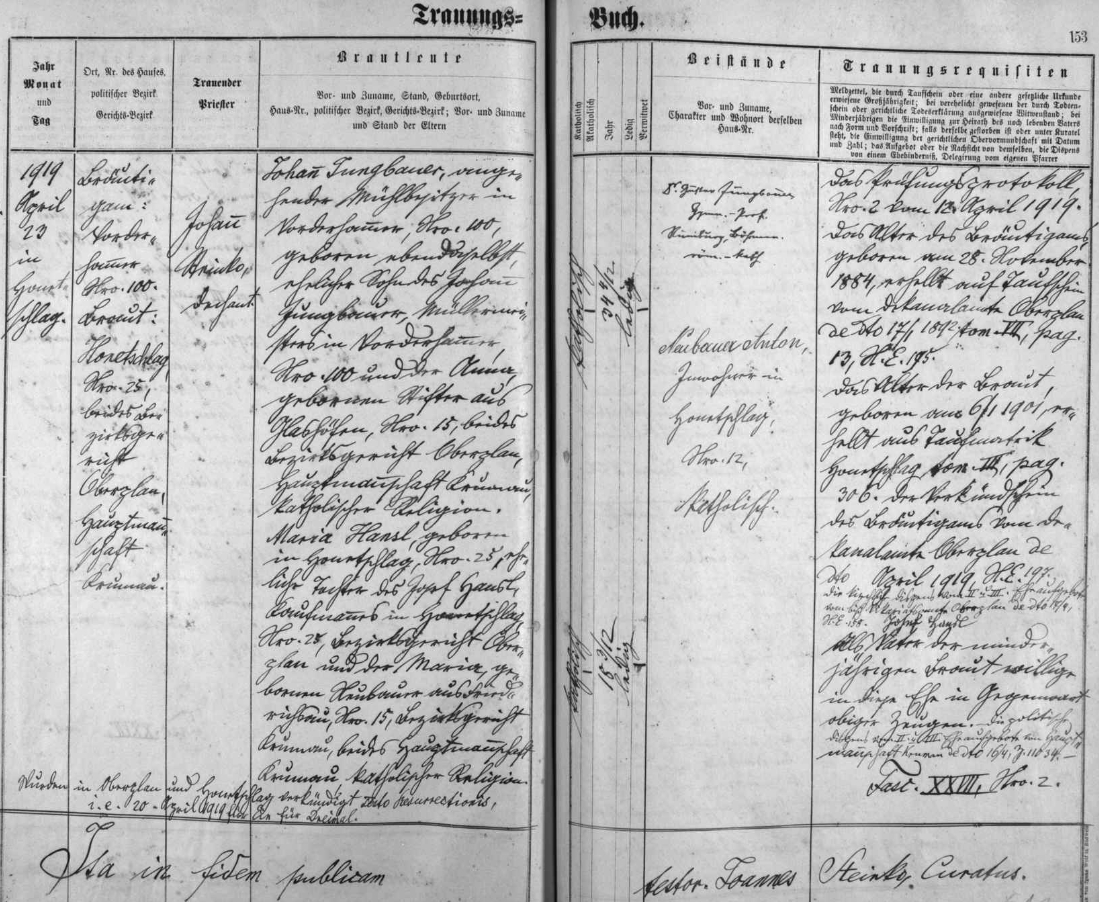 Trauungs=
Buch.
153
Jahr
Monat
und
Tag
Ort, Nr. des Hauses,
politischer Bezirk,
Gerichts-Bezirk
Trauender
Priester
Brautleute
Vor- und Zuname, Stand, Geburtsort,
Haus-Nr., politischer Bezirk, Gerichts-Bezirk; Vor- und Zuname
und Stand der Eltern
Katholisch
Akatholisch
Jahr
Ledig
Verwitwet
Beistände
Vor- und Zuname,
Charakter und Wohnort derselben
Haus-Nr.
Trauungsrequisiten
Meldzettel, die durch Taufschein oder eine andere gesetzliche Urkunde
erwiesene Großjährigkeit; bei verehelicht gewesenen der durch Todten-
schein oder gerichtliche Todeserklärung ausgewiesene Witwenstand; bei
Minderjährigen die Einwilligung zur Heirath des noch lebenden Vaters
nach Form und Vorschrift; falls derselbe gestorben ist oder unter Kuratel
steht, die Einwilligung der gerichtlichen Obervormundschaft mit Datum
und Zahl; das Aufgebot oder die Nachsicht von demselben, die Dispens
von einem Ehehinderniß, Delegirung vom eigenen Pfarrer
1919
April
23
in
Honet=
schlag.
Bräuti=
gam:
Vorder=
hammer
Nro. 100.
Braut:
Honetschlag,
Nro. 25,
beides Be=
zirksge=
richt
Oberplan,
Hauptman̄=
schaft
Krumau.
Johan̄
Steinko,
Dechant
Johan̄ Jungbauer, ange=
hender Mühlbesitzer in
Vorderhammer, Nro. 100,
geboren ebendaselbst,
ehelicher Sohn des Johann
Jungbauer, Müllermei=
sters in Vorderhammer,
Nro. 100 und der Anna,
gebornen Stifter aus
Glashöfen, Nro. 15, beides
Bezirksgericht Oberplan,
Hauptmanschaft Krumau,
katholischer Religion.
Maria Hansl, geboren
in Honetschlag, Nro. 25, ehe=
liche Tochter des Josef Hansl,
Kaufmannes in Honetschlag,
Nro. 25, Bezirksgericht Ober=
plan und der Maria, ge=
bornen Neubauer aus Fried=
richsau, Nro. 15, Bezirksgericht
Krumau, beides Hauptmanschaft
Krumau katholischer Religion.
Wurden in Oberplan und Honetschlag verkündigt Dnto Resurrectionis,
i. e. 20. April 1919 für Dreimal.
katholisch
34 4/12
ledig
katholisch
18 3/12
ledig
Dr. Gustav Jungbauer
röm. kath
Neubauer Anton,
Inwohner in
Honetschlag,
Nro. 12,
katholisch.
Das Prüfungsprotokoll,
Nro. 2 vom 12. April 1919.
Das Alter des Bräutigams,
geboren am 28. November
1884, erhellt auf Taufschein
vom Dekanalamte Oberplan
de dto 17/1 1892 tom. VII, pag.
13, N.E. 195.
Das Alter der Braut,
geboren am 6/1 1901, er=
hellt aus Taufmatrik
Honetschlag, tom. III, pag.
306. Der Verkündschein
des Bräutigams vom De=
kanalamte Oberplan de
dto April 1919, N.E. 197.
Josef Hansl
Als Vater der minder=
jährigen Braut willige
in diese Ehe in Gegenwart
obiger Zeugen. Die politische
Fasc. XXVIII, Nro. 2.
Ita in fidem publicam
testor. Joannes Steinko, Curatus.